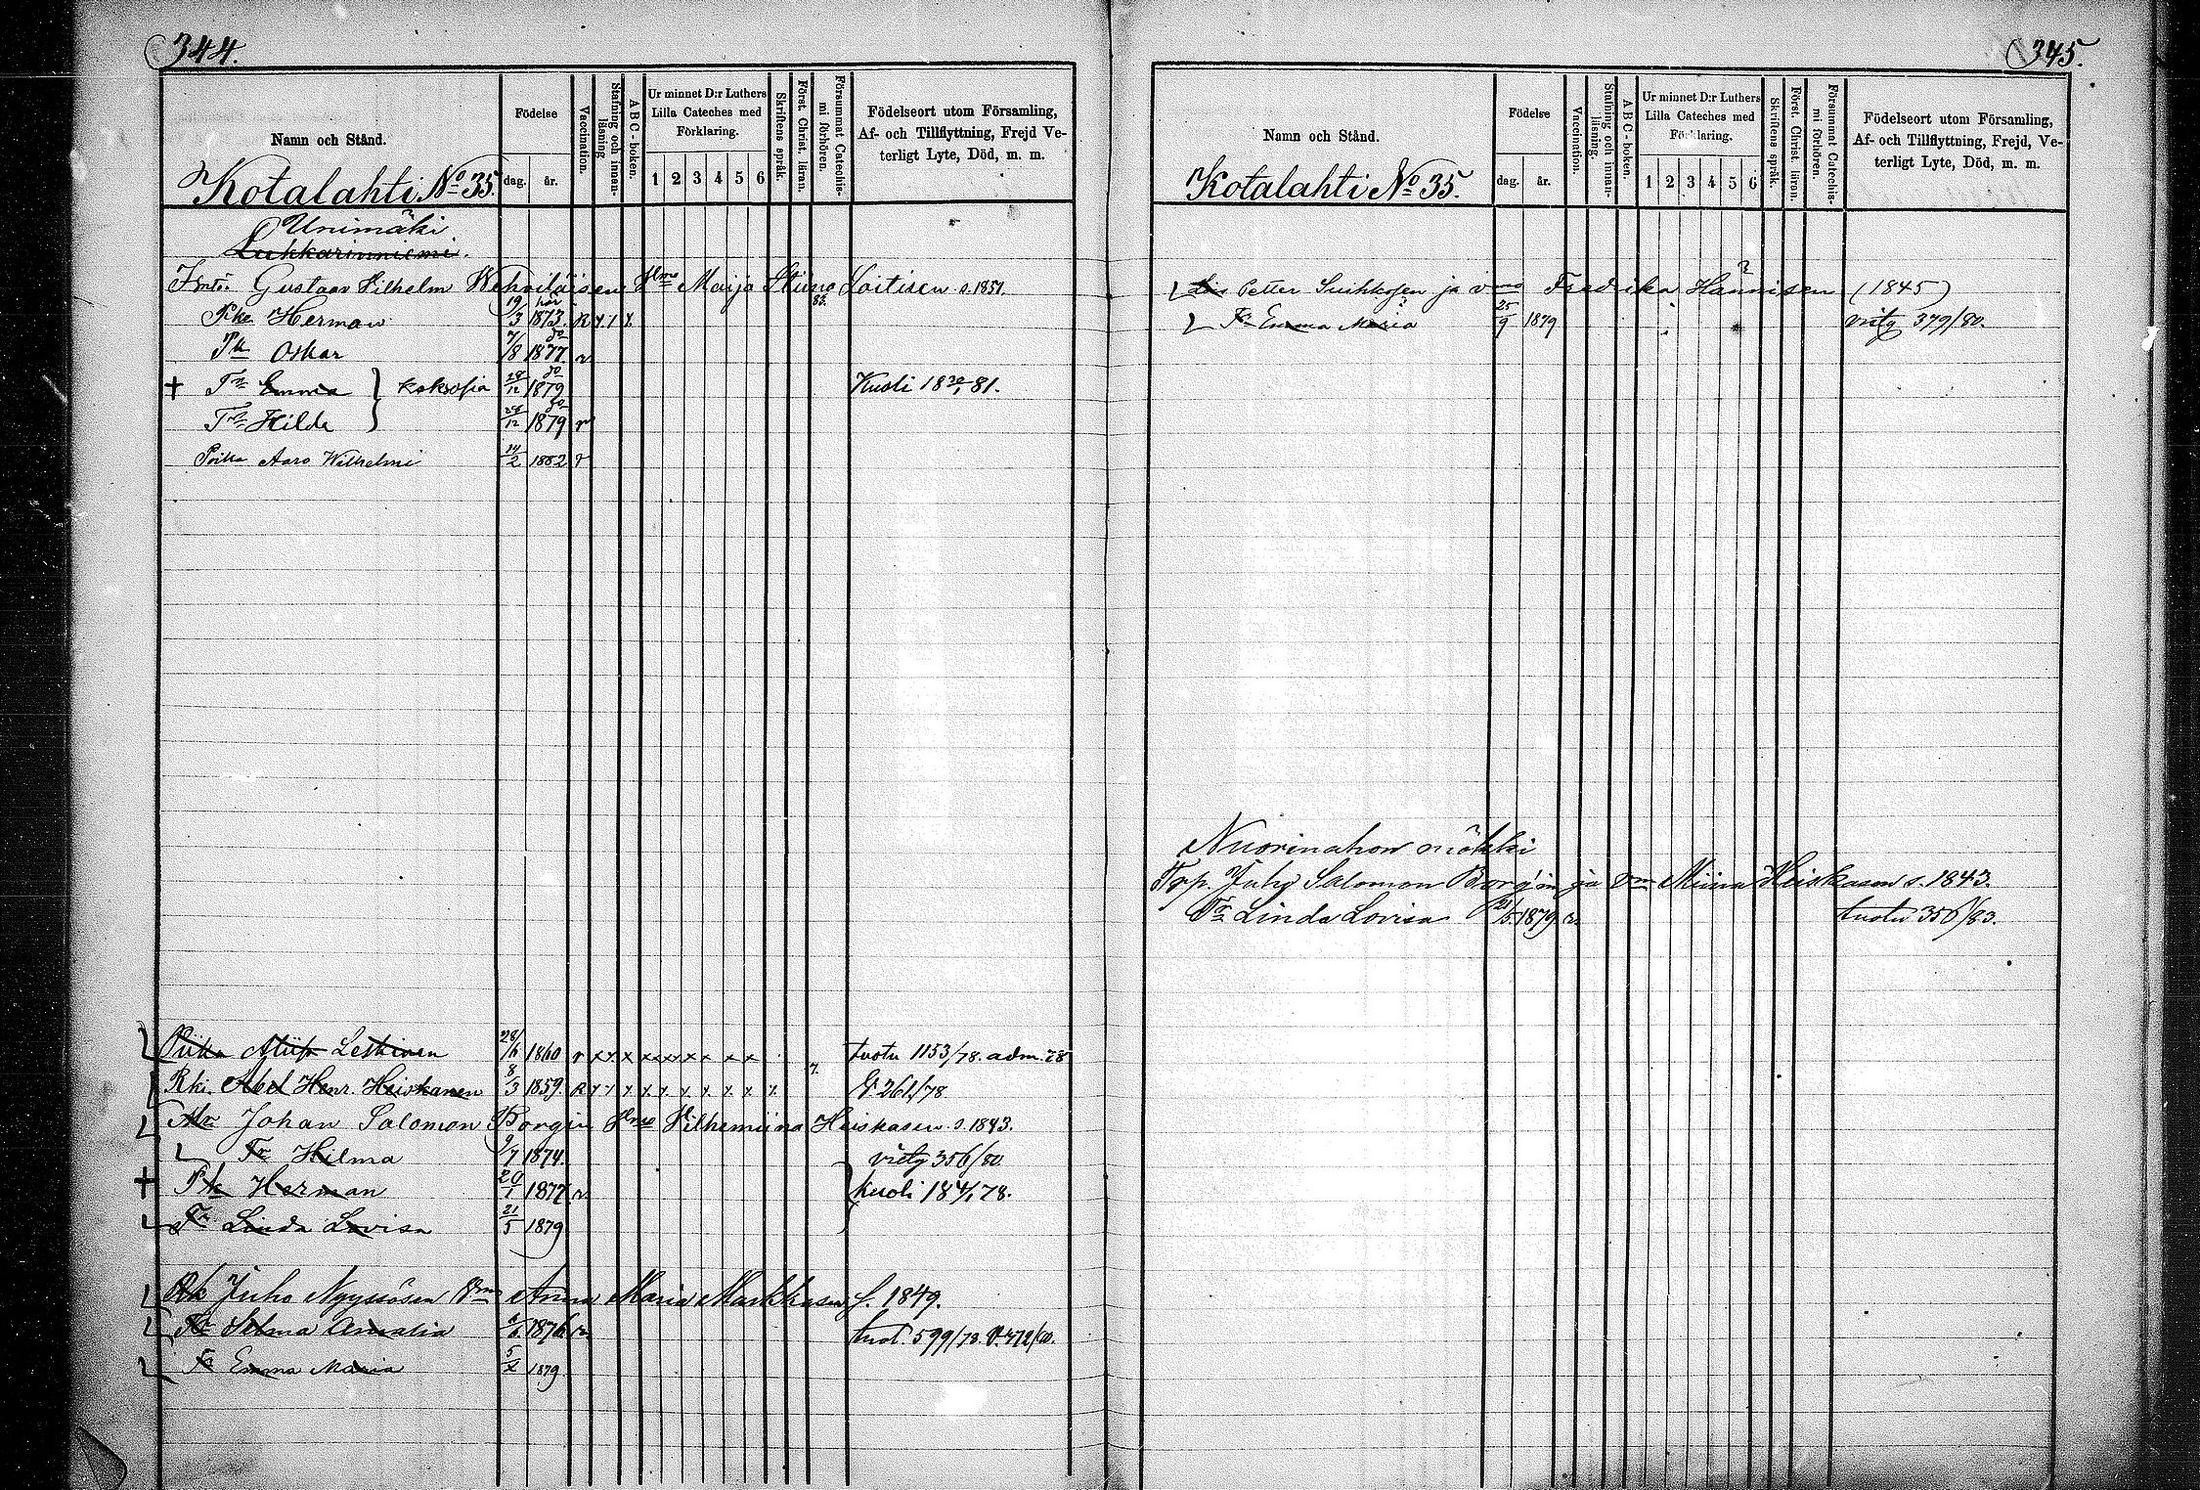 344.
Namn och Stånd.
Födelse
dag. år.
Vaccination.
Stafning och innanläsning
ABC-boken.
Ur minnet D:r Luthers Lilla Cateches med Förklaring.
1 2 3 4 5 6
Skriftens språk.
Först. Christ. läran.
Försummat Catechismi förhören.
Födelseort utom Församling,
Af- och Tillflyttning, Frejd Ve-
terligt Lyte, Död, m. m.
Kotalahti No 35.
Unimäki
Lukkarinniemi.
Gustaav Vilhelm Wehviläisen Maija Stiina Loitisen s. 1851.
Pka Herman 19/3 1873. R
Pk Oskar 7/8 1877. r
+ Tr Emma } kaksosia 28/12 1879 Kuoli 18 30/1 81.
Tr Hilda 28/12 1879 r
Poika Aaro Wilhelmi 14/2 1882 r
Piika Leskinen 28/6 1860 r x x x x x x x x x x tuotu 1153/78. adm. 78
Rki. Abel Henr. Heiskanen 8/3 1859. R x x x x x x x x x x 261/78
Johan Salomon Borgin Vilhemiina Heiskasen s. 1843.
Tr Hilma 9/7 1874. viety 356/80
+ Pk Herman 20/1 1877. r kuoli 18 4/1 78.
Tr Linda Lovisa 21/5 1879
Juho Nyyssösen Vmo Anna Maria Markkasen f. 1849.
Tr Selma Amalia 6/6 1876 r tuot. 599/78. v. 472/80.
Tr Emma Maria 1879
345.
Namn och Stånd.
Födelse
dag. år.
Vaccination.
Stafning och innanläsning.
ABC-boken.
Ur minnet D:r Luthers Lilla Cateches med Förklaring.
1 2 3 4 5 6
Skriftens språk.
Först. Christ. läran.
Försummat Catechismi förhören.
Födelseort utom Församling,
Af- och Tillflyttning, Frejd, Ve-
terligt Lyte, Död, m. m.
Kotalahti No 35.
Petter Suihkosen ja vmo Fredrika Hannisen (1845)
Tr Emma Maria 25/9 1879 viety 379/80.
Nuorinahon mökki
Juho Salomon Borgin ja vm Miina Heiskasen s. 1843.
Tr Linda Lovisa 21/5 1879. r. tuotu 356/83.